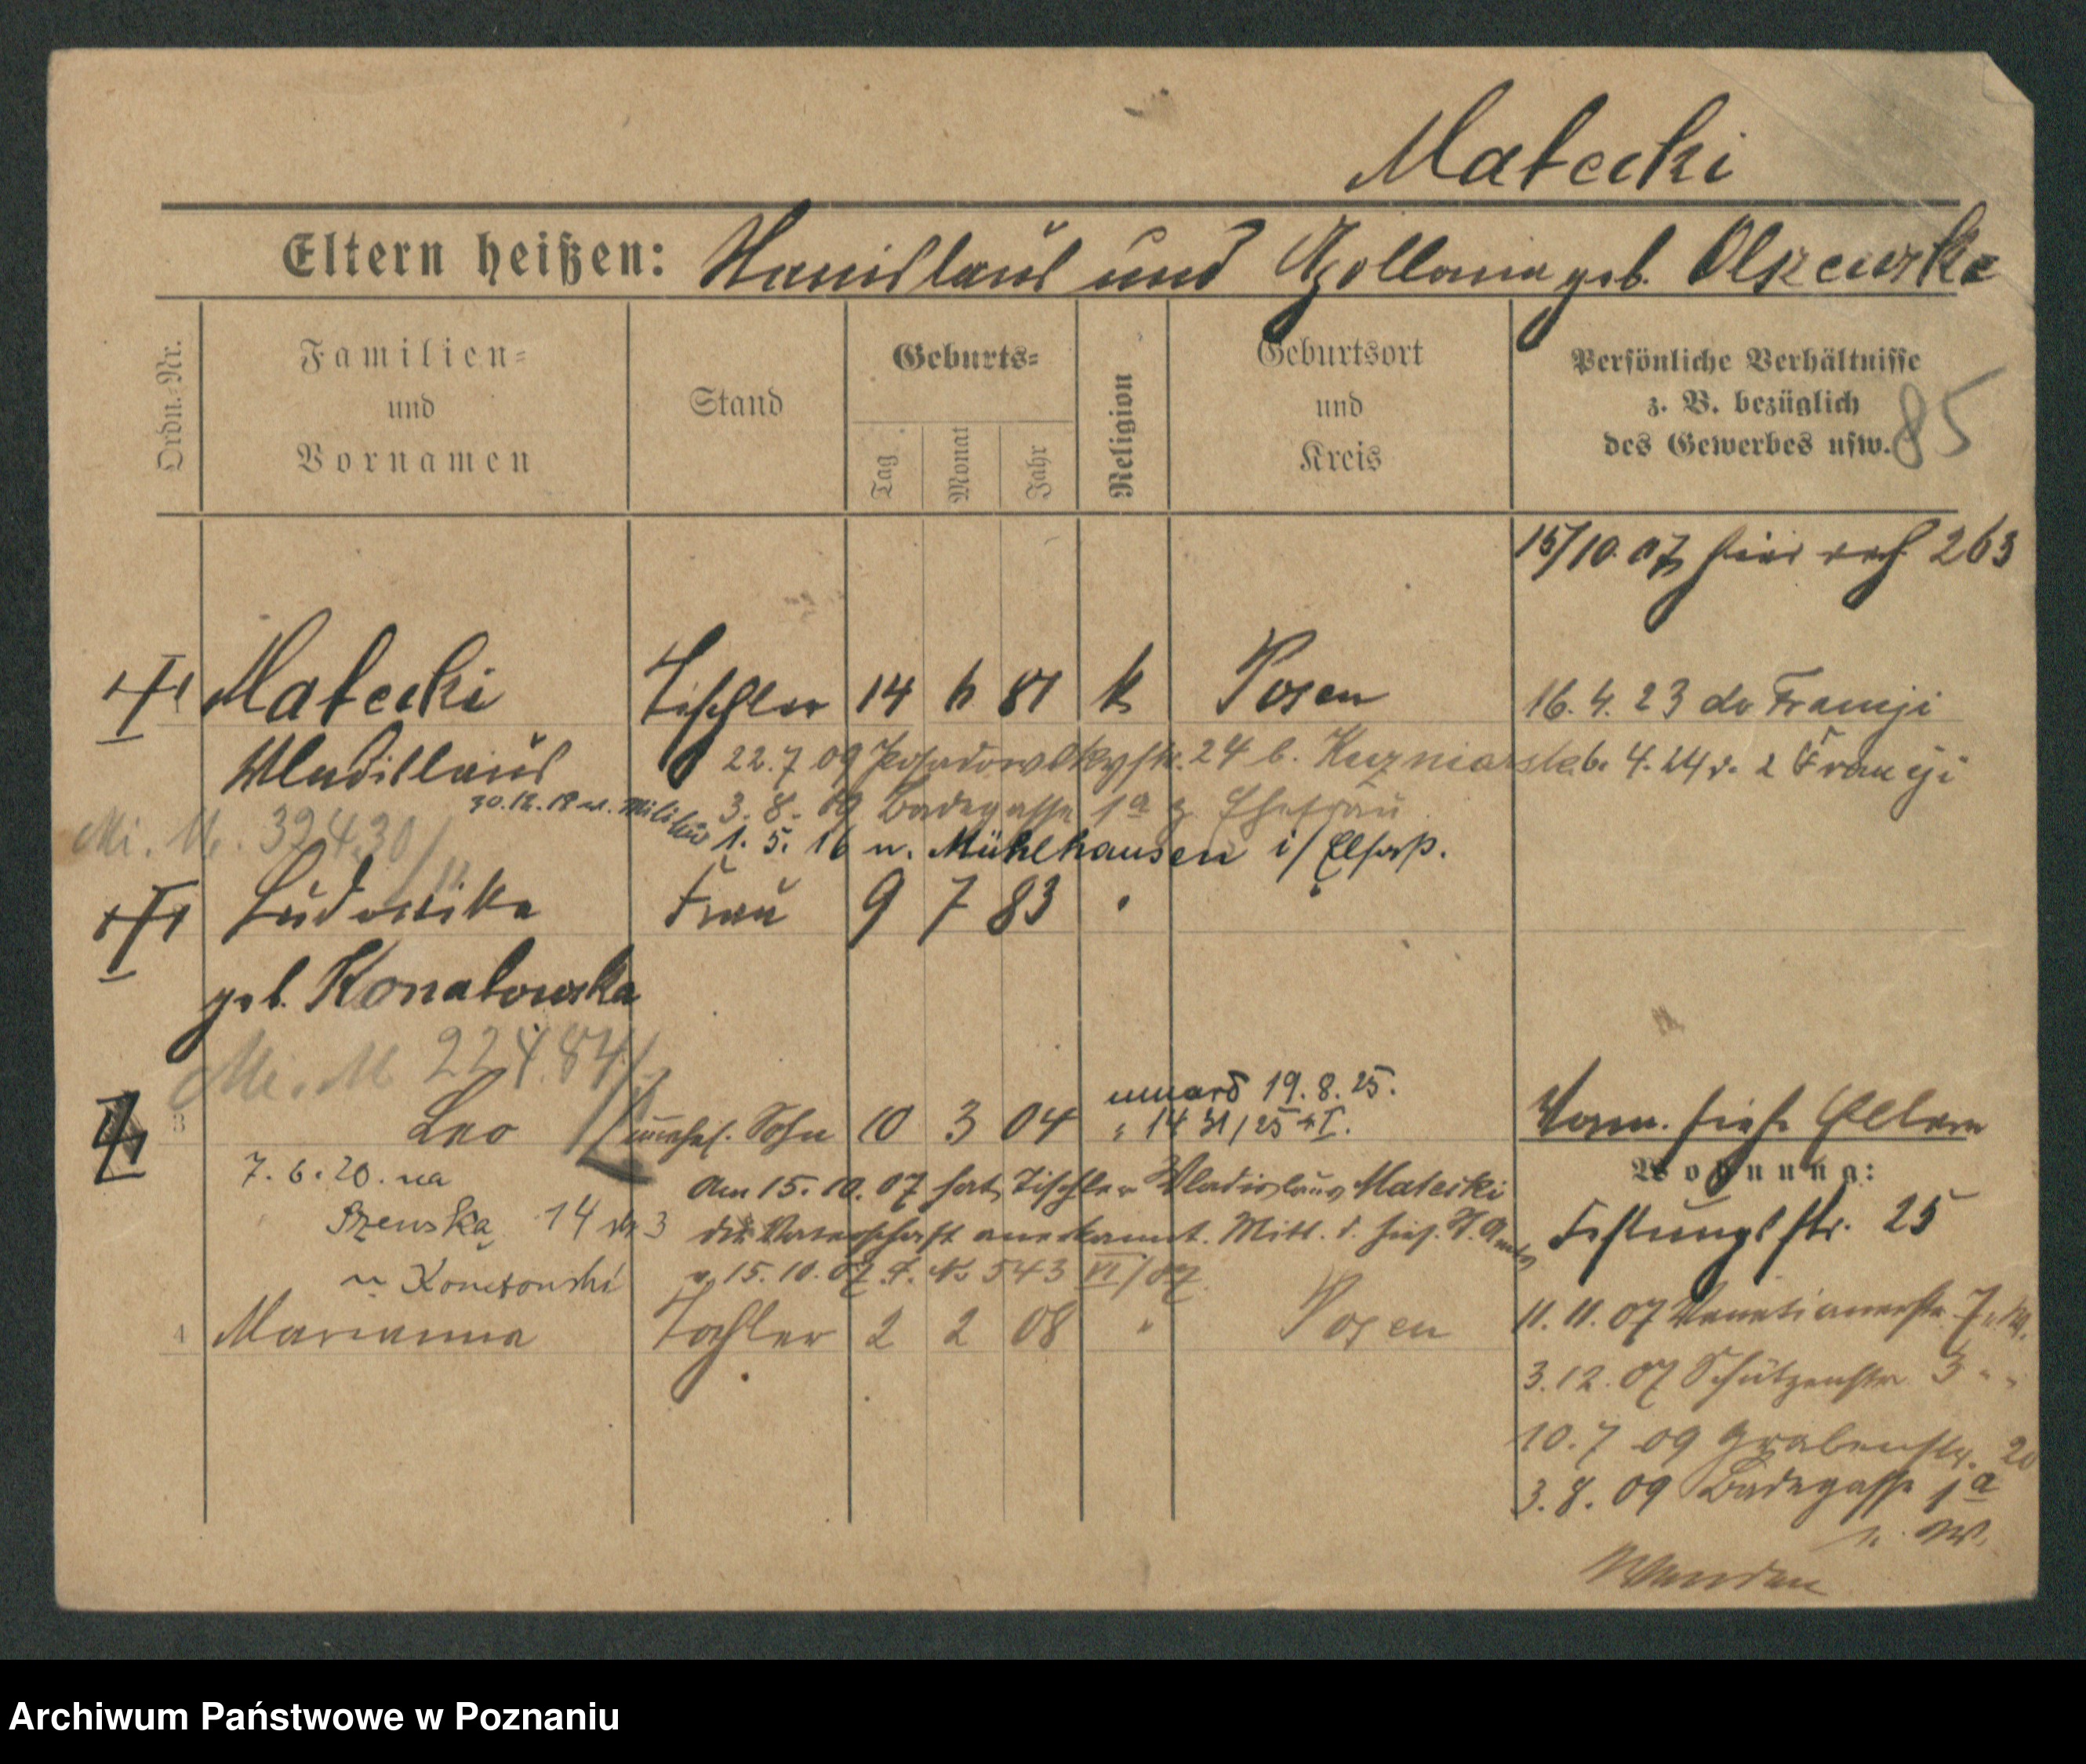 Matecki
Eltern heißen: Stanislaus und Apollonia geb. Olszewska
Ordn.-Nr.
Familien-
und
Vornamen
Stand
Geburts-
Tag
Monat
Jahr
Religion
Geburtsort
und
Kreis
Persönliche Verhältnisse
z. B. bezüglich
des Gewerbes usw.
85
15/10.07 hier 263
Matecki Tischler 14 6 81 k Posen 16.4.23 do Francji
Wladislaus 22.7.09 Posadowskystr. 24 b. Kuzniarek 6.4.24 2 Francji
30.12.18 Militär 3.8.09 Badegasse 1a z. Ehefrau
Mi. N. 32430/ 1.5.16 n. Mühlhausen i/Elsass.
Ludowika Frau 9 7 83 "
geb. Konatowska
Mi. N 22484/
3 Leo unehel. Sohn 10 3 04 19.8.25.
14 31/25 I. Vorm. siehe Eltern
7.6.20. na
Szewska 14 3
u Konatowski
Am 15.10.07 hat Tischler Wladislaus Matecki
die Vaterschaft anerkannt. Mitt. d. hies. St. Amts
v. 15.10.07 J. No 543 VI/07
Wohnung:
Festungsstr. 25
4 Marianna Tochter 2 2 08 " Posen
11.11.07 Venetianerstr. 7
3.12.07 Schützenstr 3 " "
10.7.09 Grabenstr. 20
3.8.09 Badegasse 1a
Wenden
Archiwum Państwowe w Poznaniu